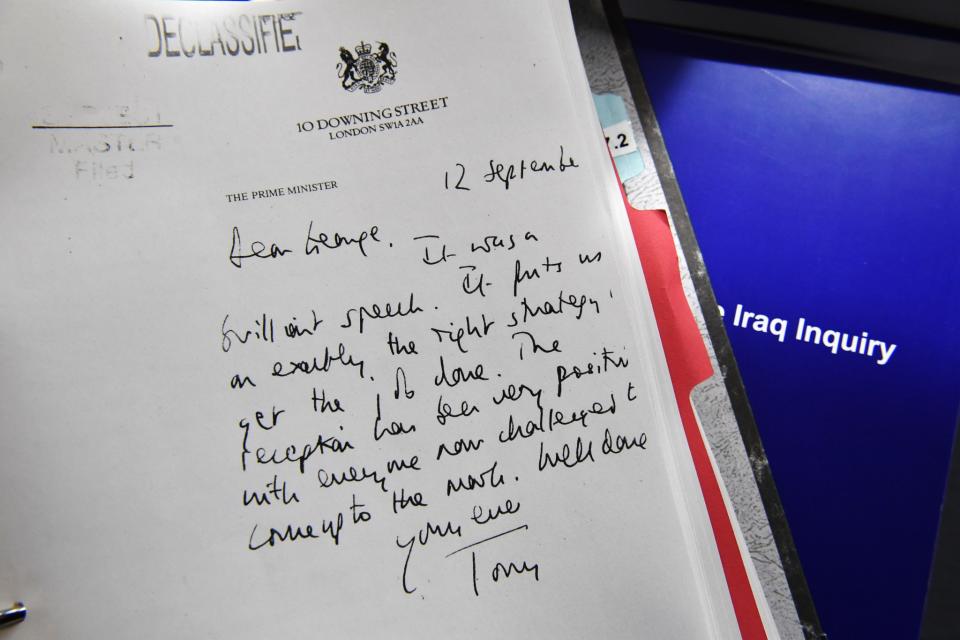 DECLASSIFIE
10 DOWNING STREET
LONDON SW1A 2AA
MASTER
Filed
THE PRIME MINISTER
12 Septembe
Dear George. It was a
brilliant speech. It puts us
on exactly the right strategy
get the job done. The
reception has been very positi
with everyone now challenged t
come up to the mark. Well done
Yours ever
Tony
7.2
e Iraq Inquiry